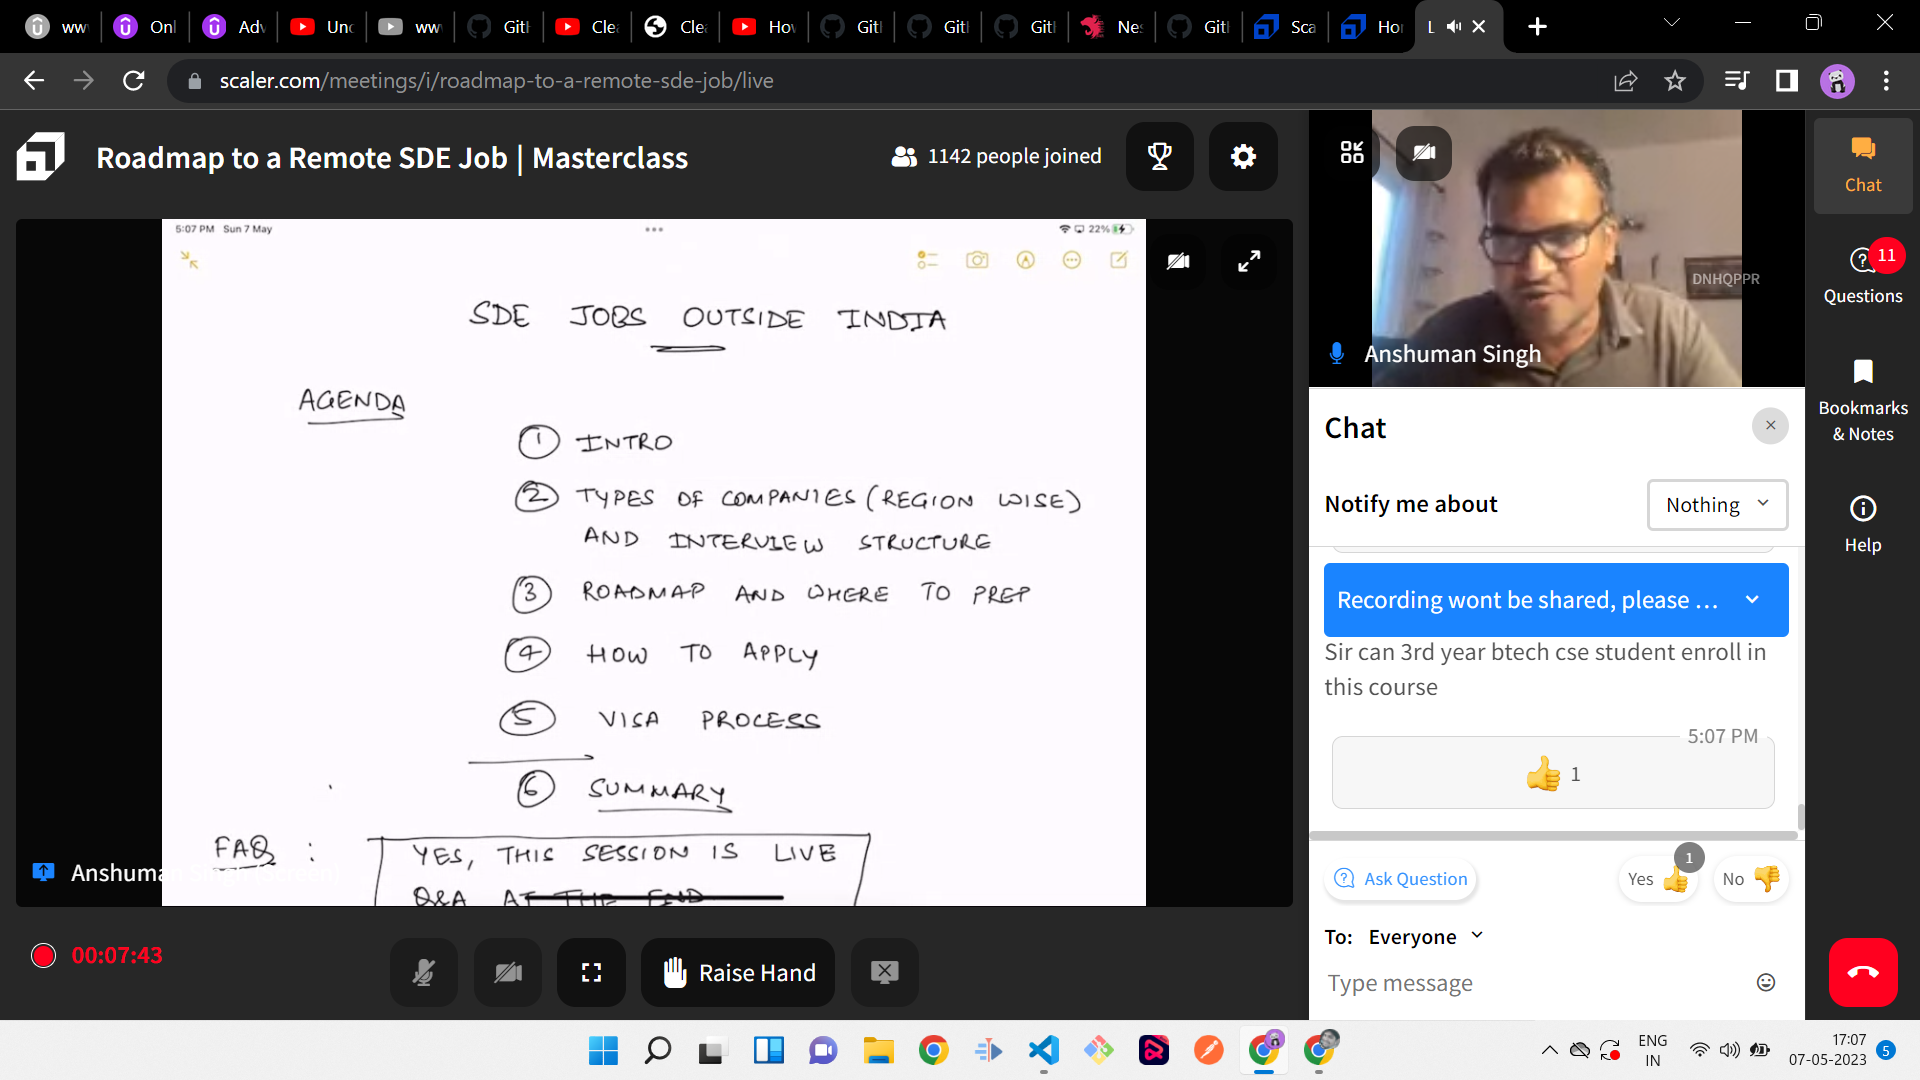 ww
Onl
Adv
Unc
ww
Git
Cle
Cle
Ho
Git
Git
Git
Nes
Git
Sca
Hor
L
scaler.com/meetings/i/roadmap-to-a-remote-sde-job/live
Roadmap to a Remote SDE Job | Masterclass
1142 people joined
5:07 PM Sun 7 May
22%
SDE JOBS OUTSIDE INDIA
AGENDA
1 INTRO
2 TYPES OF COMPANIES (REGION WISE)
AND INTERVIEW STRUCTURE
3 ROADMAP AND WHERE TO PREP
4 HOW TO APPLY
5 VISA PROCESS
6 SUMMARY
FAQ :
YES, THIS SESSION IS LIVE
Q&A AT THE END
Anshuman Singh
00:07:43
Raise Hand
DNHQPPR
Anshuman Singh
Chat
Notify me about
Nothing
Recording wont be shared, please ...
Sir can 3rd year btech cse student enroll in
this course
5:07 PM
👍 1
Ask Question
Yes 👍 1
No 👎
To: Everyone
Type message
Chat
11
Questions
Bookmarks
& Notes
Help
ENG
IN
17:07
07-05-2023
5